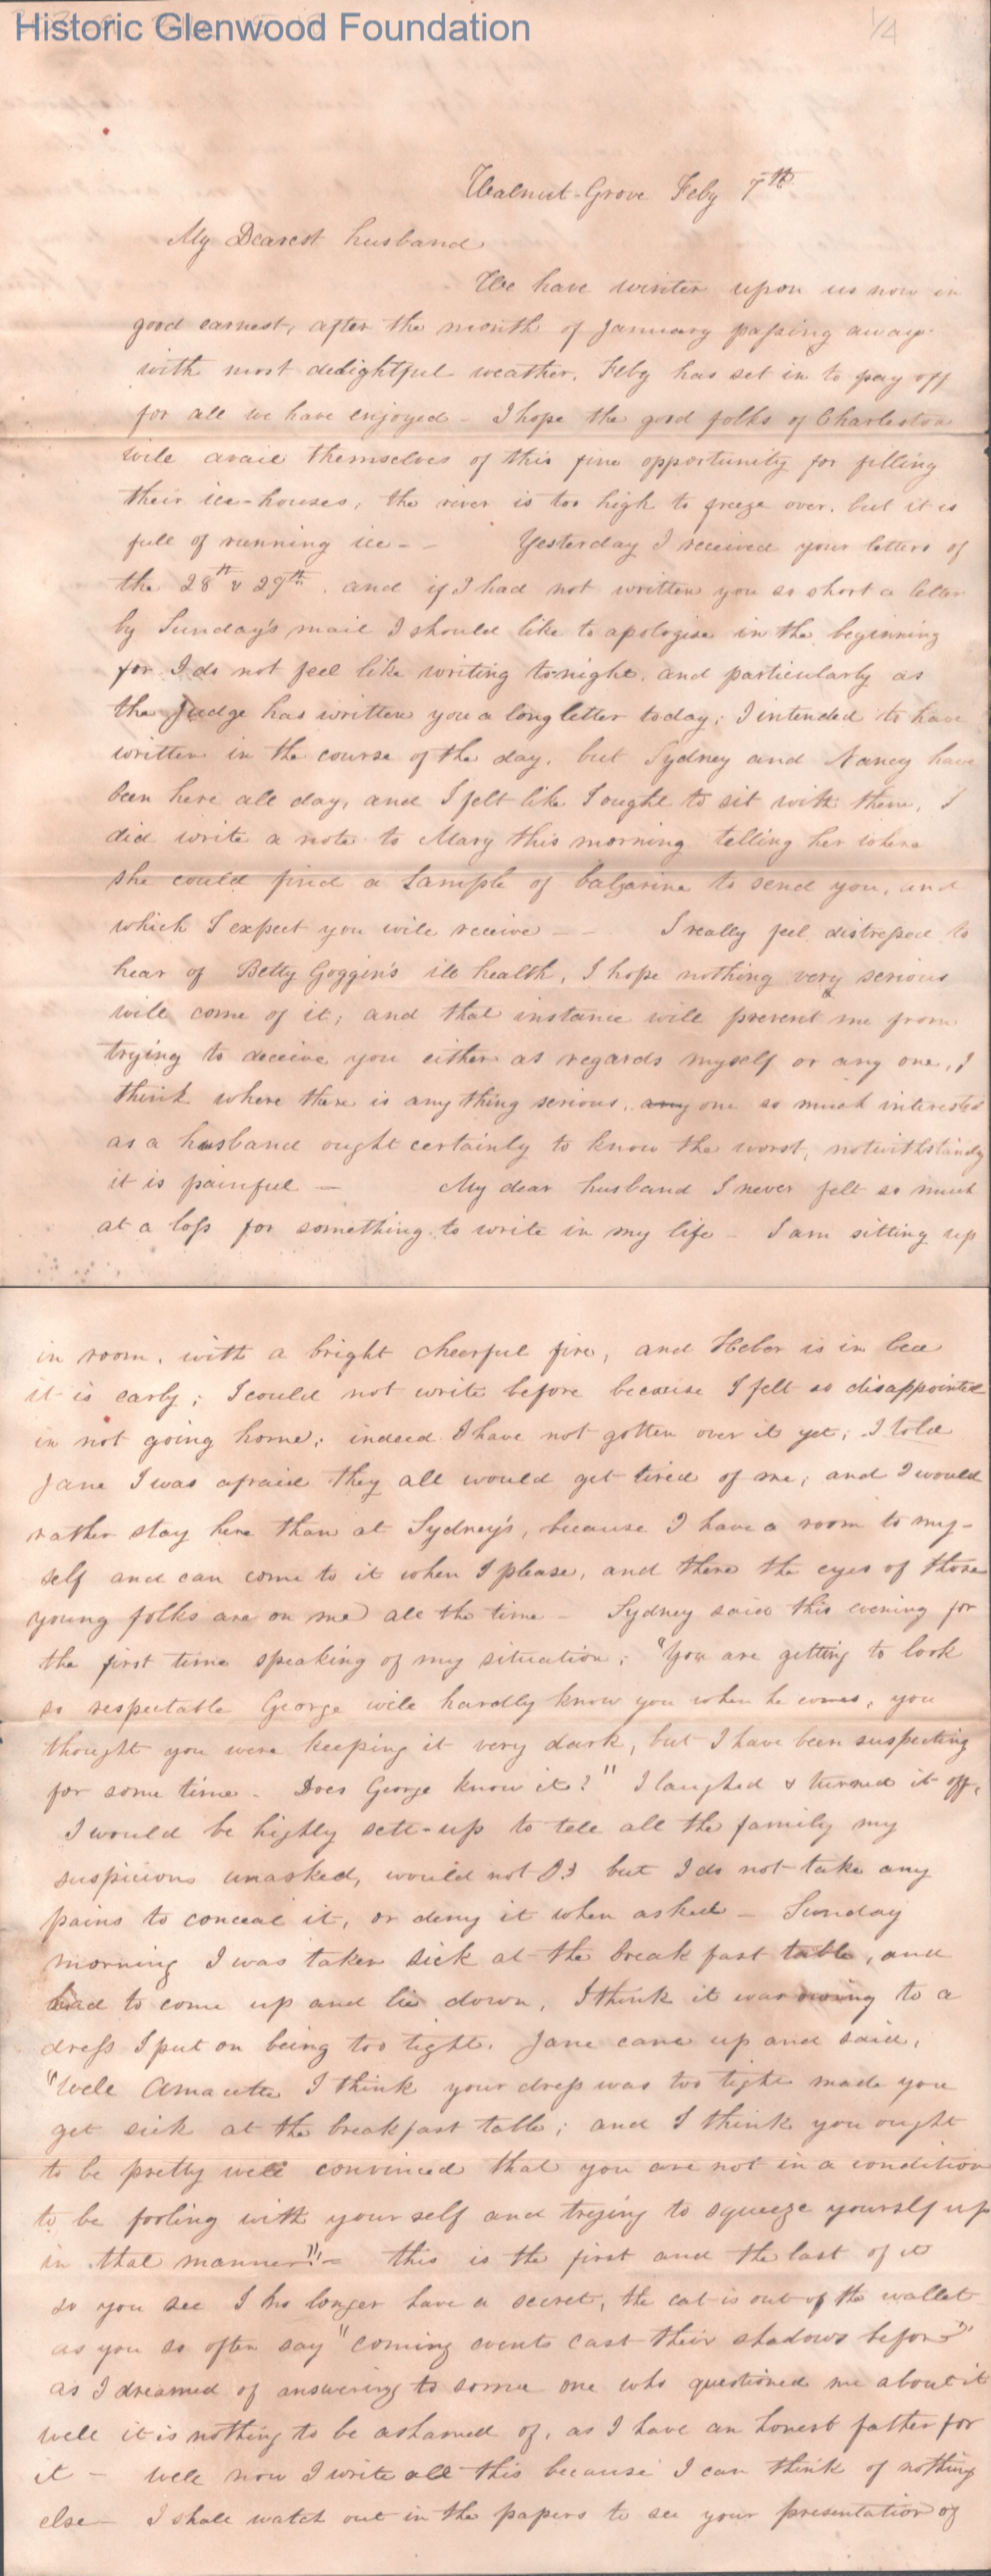 Historic Glenwood Foundation
1/4
Walnut-Grove Feby 7th
My Dearest husband
We have winter upon us now in
good earnest, after the month of January passing away
with most delightful weather. Feby has set in to pay off
for all we have enjoyed - I hope the good folks of Charleston
will avail themselves of this fine opportunity for filling
their ice-houses, the river is too high to freeze over, but it is
full of running ice - - Yesterday I received your letters of
the 28th & 29th, and if I had not written you so short a letter
by Sunday's mail I should like to apologise in the beginning
for I do not feel like writing to-night, and particularly as
the Judge has written you a long letter today; I intended to have
written in the course of the day, but Sydney and Nancy have
been here all day, and I felt like I ought to sit with them, I
did write a note to Mary this morning telling her where
she could find a sample of balzarine to send you, and
which I expect you will receive - - I really feel distressed to
hear of Betty Goggin's ill health, I hope nothing very serious
will come of it; and that instance will prevent me from
trying to deceive you either as regards myself or any one, I
think where there is any thing serious, any one so much interested
as a husband ought certainly to know the worst, notwithstandg
it is painful - My dear husband I never felt so much
at a loss for something to write in my life - I am sitting up
in room, with a bright cheerful fire, and Heber is in bed
it is early; I could not write before because I felt so disappointed
in not going home; indeed I have not gotten over it yet; I told
Jane I was afraid they all would get tired of me; and I would
rather stay here than at Sydney's, because I have a room to my-
self and can come to it when I please, and there the eyes of those
young folks are on me all the time - Sydney said this evening for
the first time speaking of my situation; "You are getting to look
so respectable George will hardly know you when he comes, you
thought you were keeping it very dark, but I have been suspecting
for some time - Does George know it?" I laughed & turned it off,
I would be highly sett-up to tell all the family my
suspicions unasked, would not I? but I do not take any
pains to conceal it, or deny it when asked - Sunday
morning I was taken sick at the breakfast table, and
had to come up and lie down, I think it was owing to a
dress I put on being too tight. Jane came up and said,
"Well Amacetta I think your dress was too tight made you
get sick at the breakfast table; and I think you ought
to be pretty well convinced that you are not in a condition
to be fooling with your self and trying to squeeze yourself up
in that manner"!! - this is the first and the last of it
so you see I no longer have a secret, the cat is out of the wallet
as you so often say "coming events cast their shadows before"
as I dreamed of answering to some one who questioned me about it
well it is nothing to be ashamed of, as I have an honest father for
it - Well now I write all this because I can think of nothing
else - I shall watch out in the papers to see your presentation of